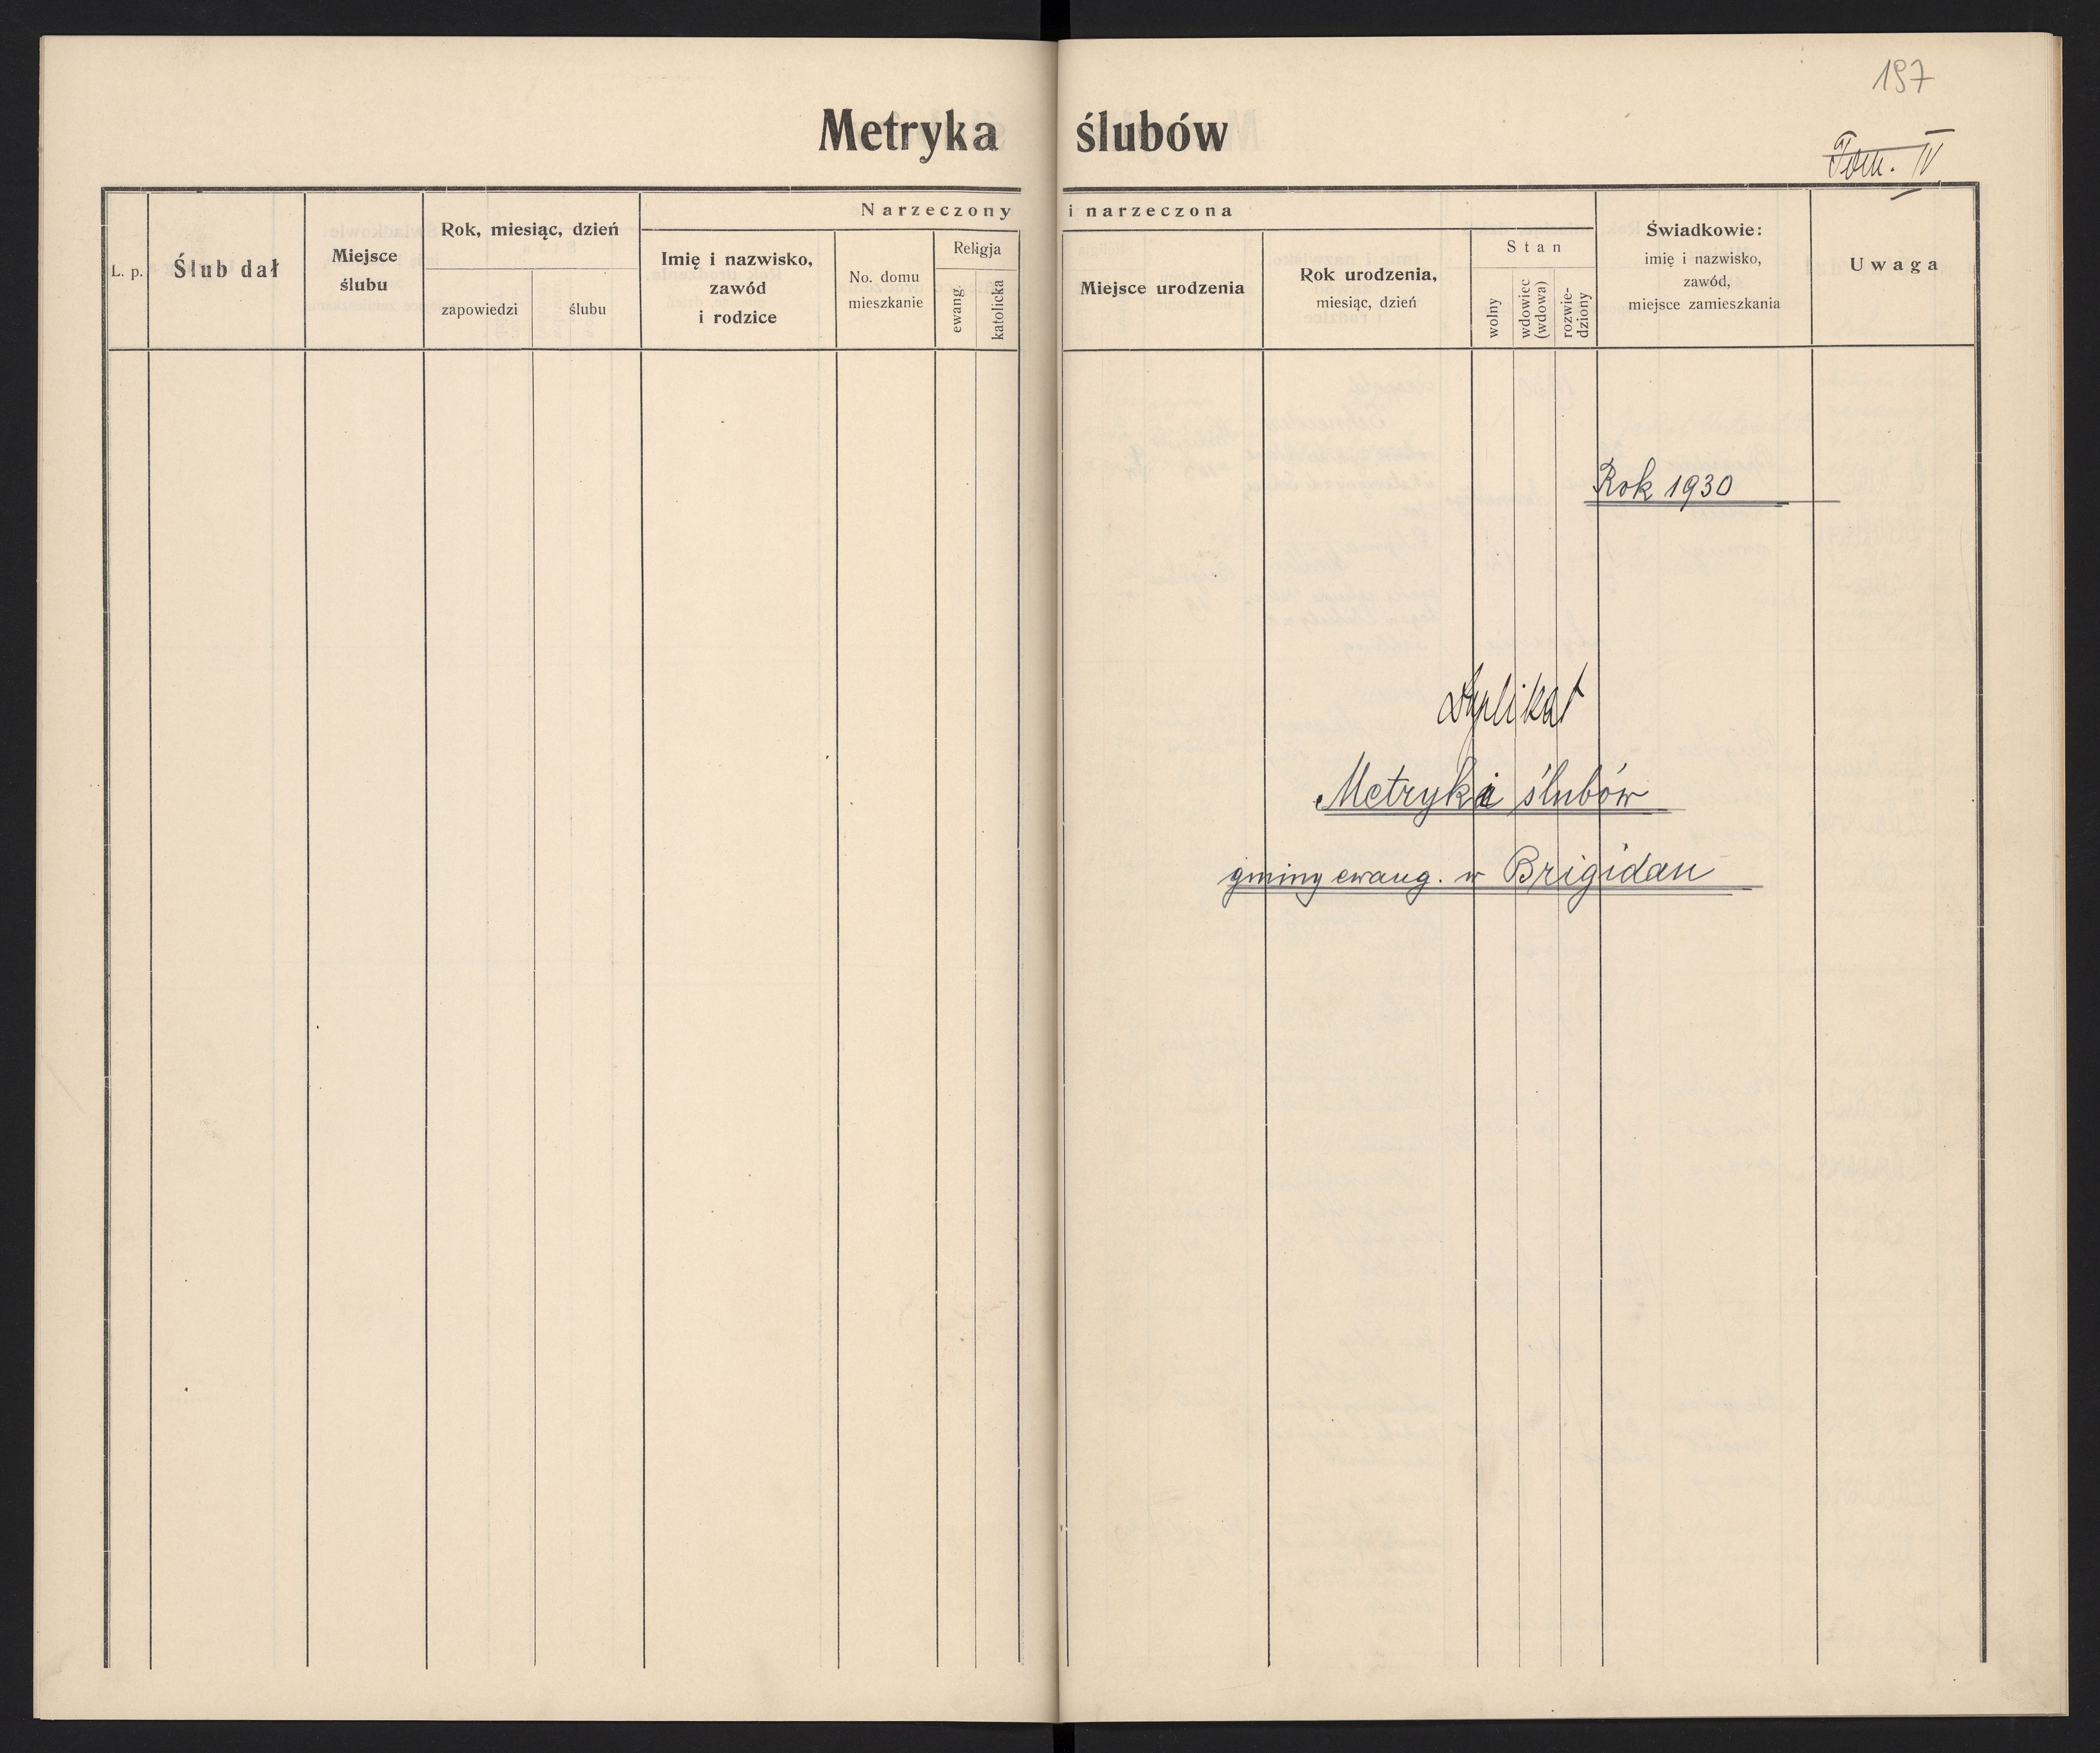 197
Metryka ślubów
Tom. IV
L. p.
Ślub dał
Miejsce
ślubu
Rok, miesiąc, dzień
zapowiedzi
ślubu
Narzeczony i narzeczona
Imię i nazwisko,
zawód
i rodzice
No. domu
mieszkanie
Religja
ewang.
katolicka
Miejsce urodzenia
Rok urodzenia,
miesiąc, dzień
Stan
wolny
wdowiec
(wdowa)
rozwie-
dziony
Świadkowie:
imię i nazwisko,
zawód,
miejsce zamieszkania
Uwaga
Rok 1930
Duplikat
Metryki ślubów
gminy ewang. w Brigidau